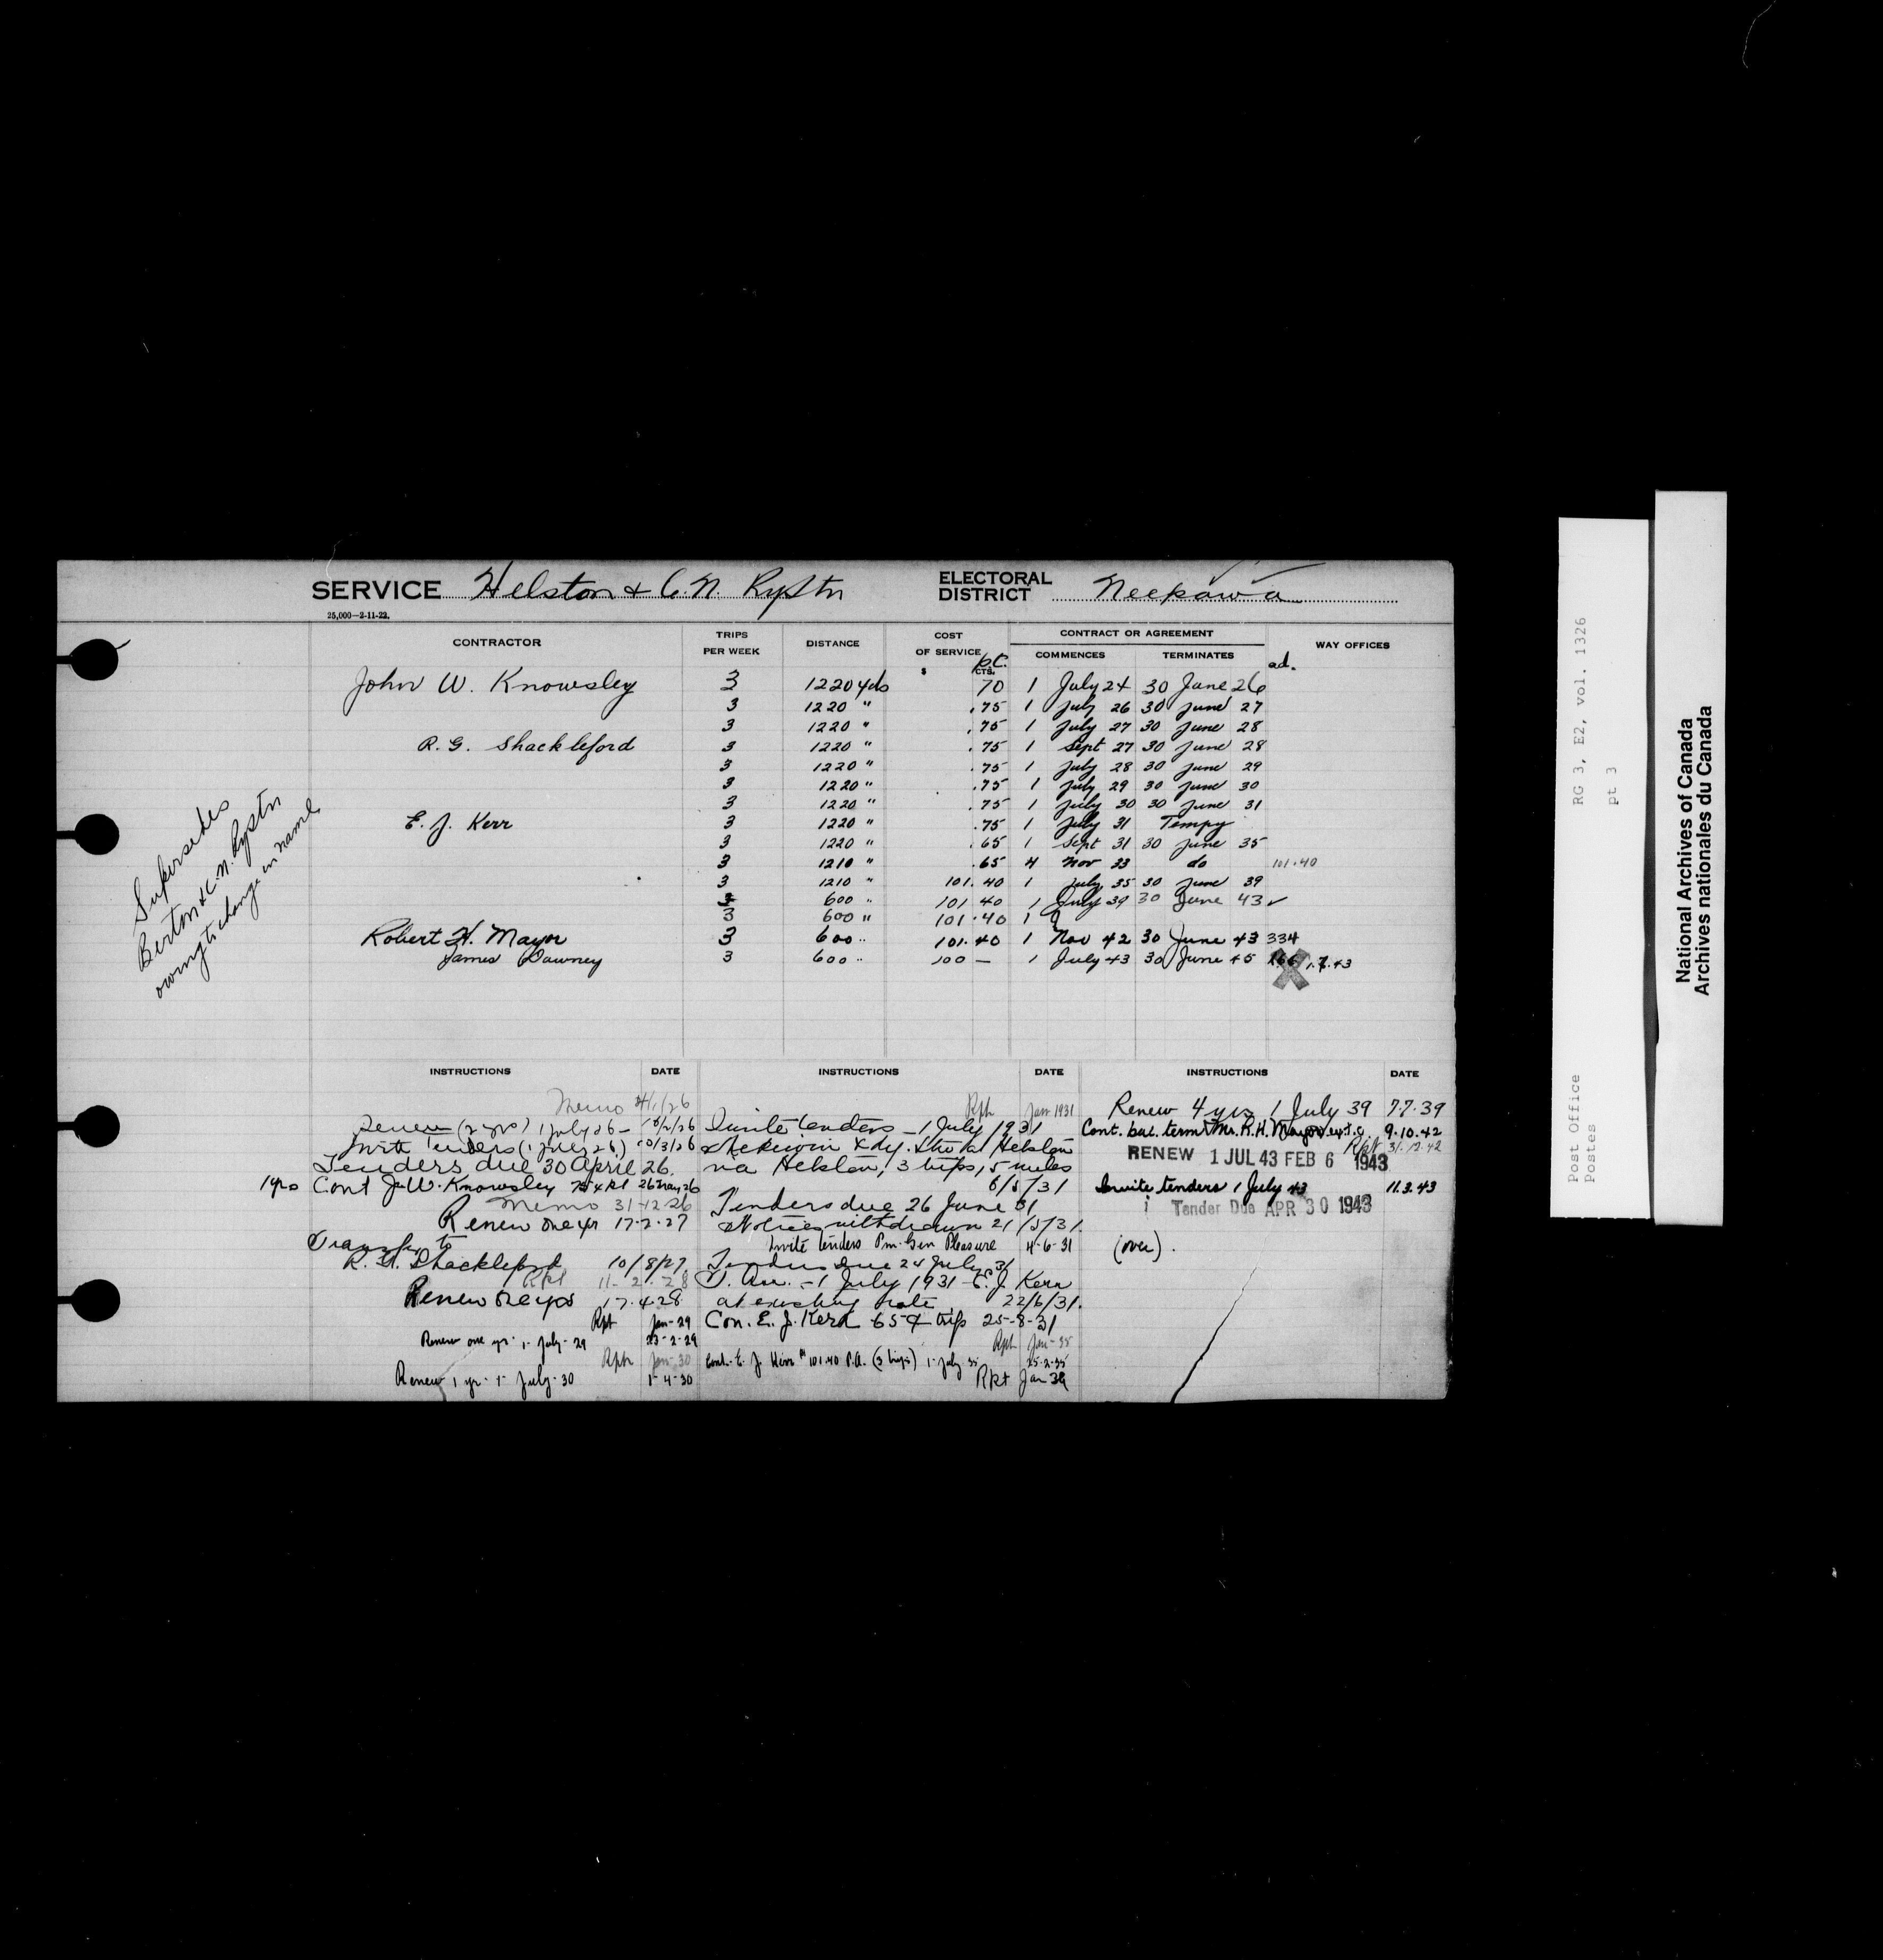 SERVICE Helston & C. N. Ry Stn ELECTORAL DISTRICT Neepawa
25,000—2-11-22.
CONTRACTOR TRIPS PER WEEK DISTANCE COST OF SERVICE CONTRACT OR AGREEMENT WAY OFFICES
$ CTS. COMMENCES TERMINATES
p.c. ad.
John W. Knowsley 3 1220 yds 70 1 July 24 30 June 26
3 1220 " .75 1 July 26 30 June 27
3 1220 " .75 1 July 27 30 June 28
R. G. Shackleford 3 1220 " .75 1 Sept 27 30 June 28
3 1220 " .75 1 July 28 30 June 29
3 1220 " .75 1 July 29 30 June 30
3 1220 " .75 1 July 30 30 June 31
E. J. Kerr 3 1220 " .75 1 July 31 Tempy
3 1220 " .65 1 Sept 31 30 June 35
3 1210 " .65 4 Nov 33 do 101.40
3 1210 " 101.40 1 July 35 30 June 39
3 600 " 101 40 1 July 39 30 June 43 ✓
3 600 " 101.40 1
Robert H. Mayor 3 600 " 101.40 1 Nov 42 30 June 43 334
James Downey 3 600 " 100 — 1 July 43 30 June 45 1.7.43
Supersedes
Berton & C. N. Ry Stn
owing to change in name
INSTRUCTIONS DATE
Memo 4/1/26
Renew (2 yrs) 1 July 26 - 10/2/26
Invite Tenders (1 July 26) 10/3/26
Tenders due 30 April 26.
1 yrs Cont J. W. Knowsley 26 May 26
Memo 31-12-26
Renew one yr 17-2-27
Transfer to
R. G. Shackleford 10/8/27
Rpt 11-2-28
Renew one yrs 17.4.28
Rpt Jan-29
Renew one yr. 1- July-29 23-2-29
Rptn Jan-30
Renew 1 yr. 1- July-30 1-4-30
INSTRUCTIONS DATE
Rpt Jan 1931
Invite tenders - 1 July 1931
Helston
via Helston, 3 trips, 5 miles
6/5/31
Tenders due 26 June 31
Notices withdrawn 21/5/31.
Invite tenders Pm. Gen Pleasure 4-6-31
Tenders due 24 July 31
- 1 July 1931 - E. J. Kerr
at existing rate 22/6/31.
Con. E. J. Kerr 65¢ trip 25-8-31
Rpt Jan-35
Cont. E. J. Kerr $101.40 P.A. (3 trips) 1- July 35 25-2-35
Rpt Jan 39
INSTRUCTIONS DATE
Renew 4 yrs 1 July 39 7.7.39
Cont. bal. term Mr. R. H. Mayor 9.10.42
Rpt 31.12.42
RENEW 1 JUL 43 FEB 6 1943
Invite tenders 1 July 43 11.3.43
Tender Due APR 30 1943
(over).
RG 3, E2, vol. 1326
pt 3
Post Office
Postes
National Archives of Canada
Archives nationales du Canada